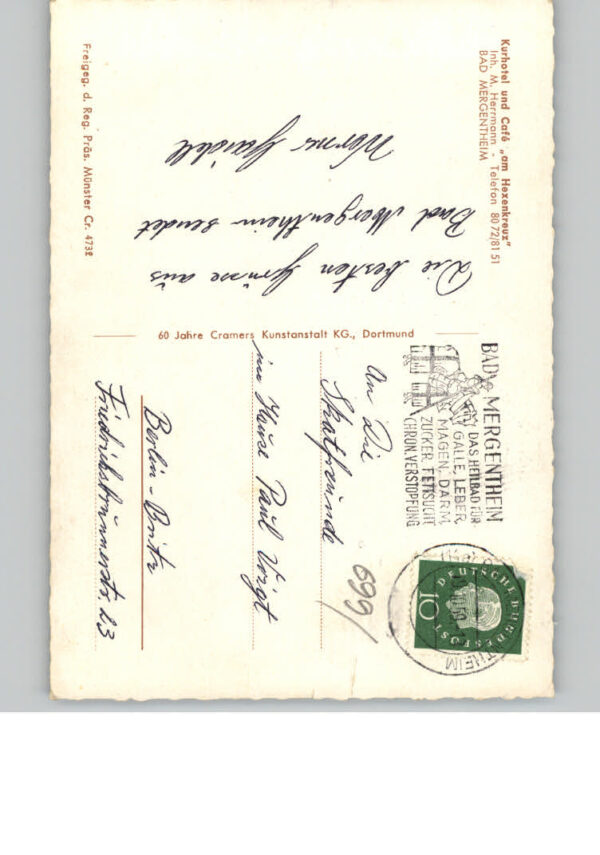 Kurhotel und Café „am Hexenkreuz"
Inh. M. Herrmann - Telefon 80 72/81 51
BAD MERGENTHEIM
Die besten Grüsse aus
Bad Mergentheim sendet
Werner
Freigeg. d. Reg. Präs. Münster Cr. 4732
60 Jahre Cramers Kunstanstalt KG., Dortmund
BAD MERGENTHEIM
DAS HEILBAD FÜR
GALLE, LEBER,
MAGEN, DARM,
ZUCKER, FETTSUCHT
CHRON. VERSTOPFUNG
DEUTSCHE BUNDESPOST
10
An Die
Skatfreunde
im Hause Paul Voigt
Berlin-Britz
Friedrichsbrunnerstr. 23
699/